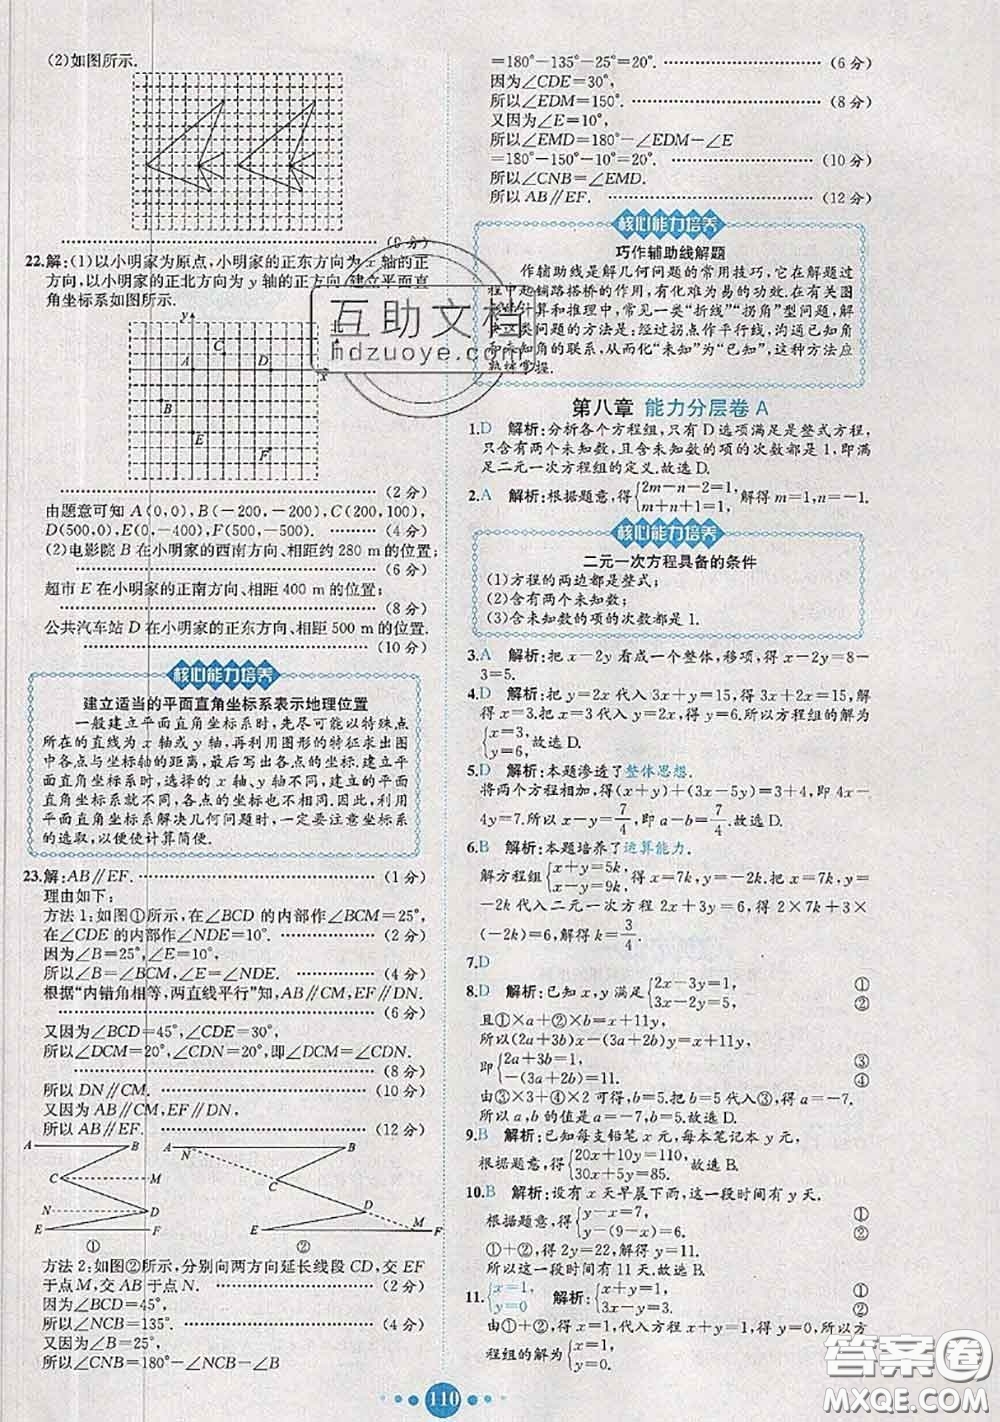 (2)如图所示.
(6分)
22.解:(1)以小明家为原点,小明家的正东方向为x轴的正
方向,以小明家的正北方向为y轴的正方向,建立平面直
角坐标系如图所示.
y
北
C
A
D
x
B
E
F
(2分)
由题意可知A(0,0),B(-200,-200),C(200,100),
D(500,0),E(0,-400),F(500,-500). (4分)
(2)电影院B在小明家的西南方向、相距约280 m的位置;
(6分)
超市E在小明家的正南方向、相距400 m的位置;
(8分)
公共汽车站D在小明家的正东方向、相距500 m的位置.
(10分)
核心能力培养
建立适当的平面直角坐标系表示地理位置
一般建立平面直角坐标系时,先尽可能以特殊点
所在的直线为x轴或y轴,再利用图形的特征求出图
中各点与坐标轴的距离,最后写出各点的坐标.建立平
面直角坐标系时,选择的x轴、y轴不同,建立的平面
直角坐标系就不同,各点的坐标也不同.因此,利用
平面直角坐标系解决几何问题时,一定要注意坐标系
的选取,以便使计算简便.
23.解:AB∥EF. (1分)
理由如下:
方法1:如图①所示,在∠BCD的内部作∠BCM=25°,
在∠CDE的内部作∠NDE=10°. (2分)
因为∠B=25°,∠E=10°,
所以∠B=∠BCM,∠E=∠NDE. (4分)
根据“内错角相等,两直线平行”知,AB∥CM,EF∥DN.
(6分)
又因为∠BCD=45°,∠CDE=30°,
所以∠DCM=20°,∠CDN=20°,即∠DCM=∠CDN.
(8分)
所以DN∥CM. (10分)
又因为AB∥CM,EF∥DN,
所以AB∥EF. (12分)
A B
C M
N D
E F
①
A N B
C
D
E M F
②
方法2:如图②所示,分别向两方向延长线段CD,交EF
于点M,交AB于点N. (2分)
因为∠BCD=45°,
所以∠NCB=135°. (4分)
又因为∠B=25°,
所以∠CNB=180°-∠NCB-∠B
=180°-135°-25°=20°. (6分)
因为∠CDE=30°,
所以∠EDM=150°. (8分)
又因为∠E=10°,
所以∠EMD=180°-∠EDM-∠E
=180°-150°-10°=20°. (10分)
所以∠CNB=∠EMD.
所以AB∥EF. (12分)
核心能力培养
巧作辅助线解题
作辅助线是解几何问题的常用技巧,它在解题过
程中起铺路搭桥的作用,有化难为易的功效.在有关图
形的计算和推理中,常见一类“折线”“拐角”型问题,解
决这类问题的方法是:经过拐点作平行线,沟通已知角
和未知角的联系,从而化“未知”为“已知”,这种方法应
熟练掌握.
第八章 能力分层卷A
1.D 解析:分析各个方程组,只有D选项满足是整式方程,
只含有两个未知数,且含两个未知数的项的次数都是1,即满
足二元一次方程组的定义.故选D.
2.A 解析:根据题意,得{2m-n-2=1, m+n+1=1, 解得m=1,n=-1.
核心能力培养
二元一次方程具备的条件
(1)方程的两边都是整式;
(2)含有两个未知数;
(3)含未知数的项的次数都是1.
3.A 解析:把x-2y看成一个整体,移项,得x-2y=8-
3=5.
4.D 解析:把y=2x代入3x+y=15,得3x+2x=15,解
得x=3.把x=3代入y=2x,得y=6.所以方程组的解为
{x=3, y=6, 故选D.
5.D 解析:本题渗透了整体思想.
将两个方程相加,得(x+y)+(3x-5y)=3+4,即4x-
4y=7.所以x-y=7/4,即a-b=7/4.故选D.
6.B 解析:本题培养了运算能力.
解方程组{x+y=5k, x-y=9k, 得x=7k,y=-2k.把x=7k,y=
-2k代入二元一次方程2x+3y=6,得2×7k+3×
(-2k)=6,解得k=3/4.
7.D
8.D 解析:已知x,y满足{2x-3y=1, ① 3x-2y=5, ②
且①×a+②×b=x-y,
所以(2a+3b)x-(3a+2b)y=x+7y,
即{2a+3b=1, ③ -(3a+2b)=7, ④
由③×3+④×2可得,b=5.把b=5代入③,得a=-7.
所以a,b的值是a=-7,b=5.故选D.
9.B 解析:已知每支铅笔x元,每本笔记本y元,
根据题意,得{20x+10y=110, 30x+5y=85. 故选B.
10.B 解析:设有x天早晨下雨,这一段时间有y天.
根据题意,得{y-x=7, ① y-(9-x)=6. ②
①+②,得2y=22,解得y=11.
所以这一段时间有11天.故选B.
11.{x=1, y=0 解析:{x+y=1, ① 3x-y=3. ②
由①+②,得4x=4,即x=1.代入方程x+y=1,得y=0.所以方
程组的解为{x=1, y=0.
110
互助文档
hdzuoye.com
答案圈
MXQE.COM